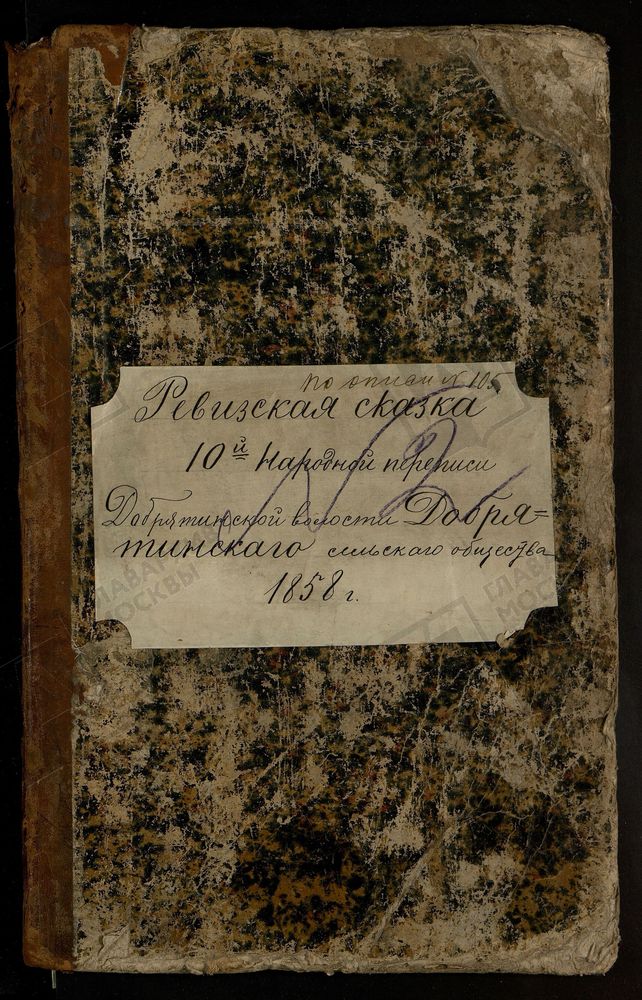 по описи № 105
Ревизская сказка
10й Народной переписи
Добрятинской волости Добря=
тинскаго сельскаго общества
1858 г.
ГЛАВАРХИВ
МОСКВЫ